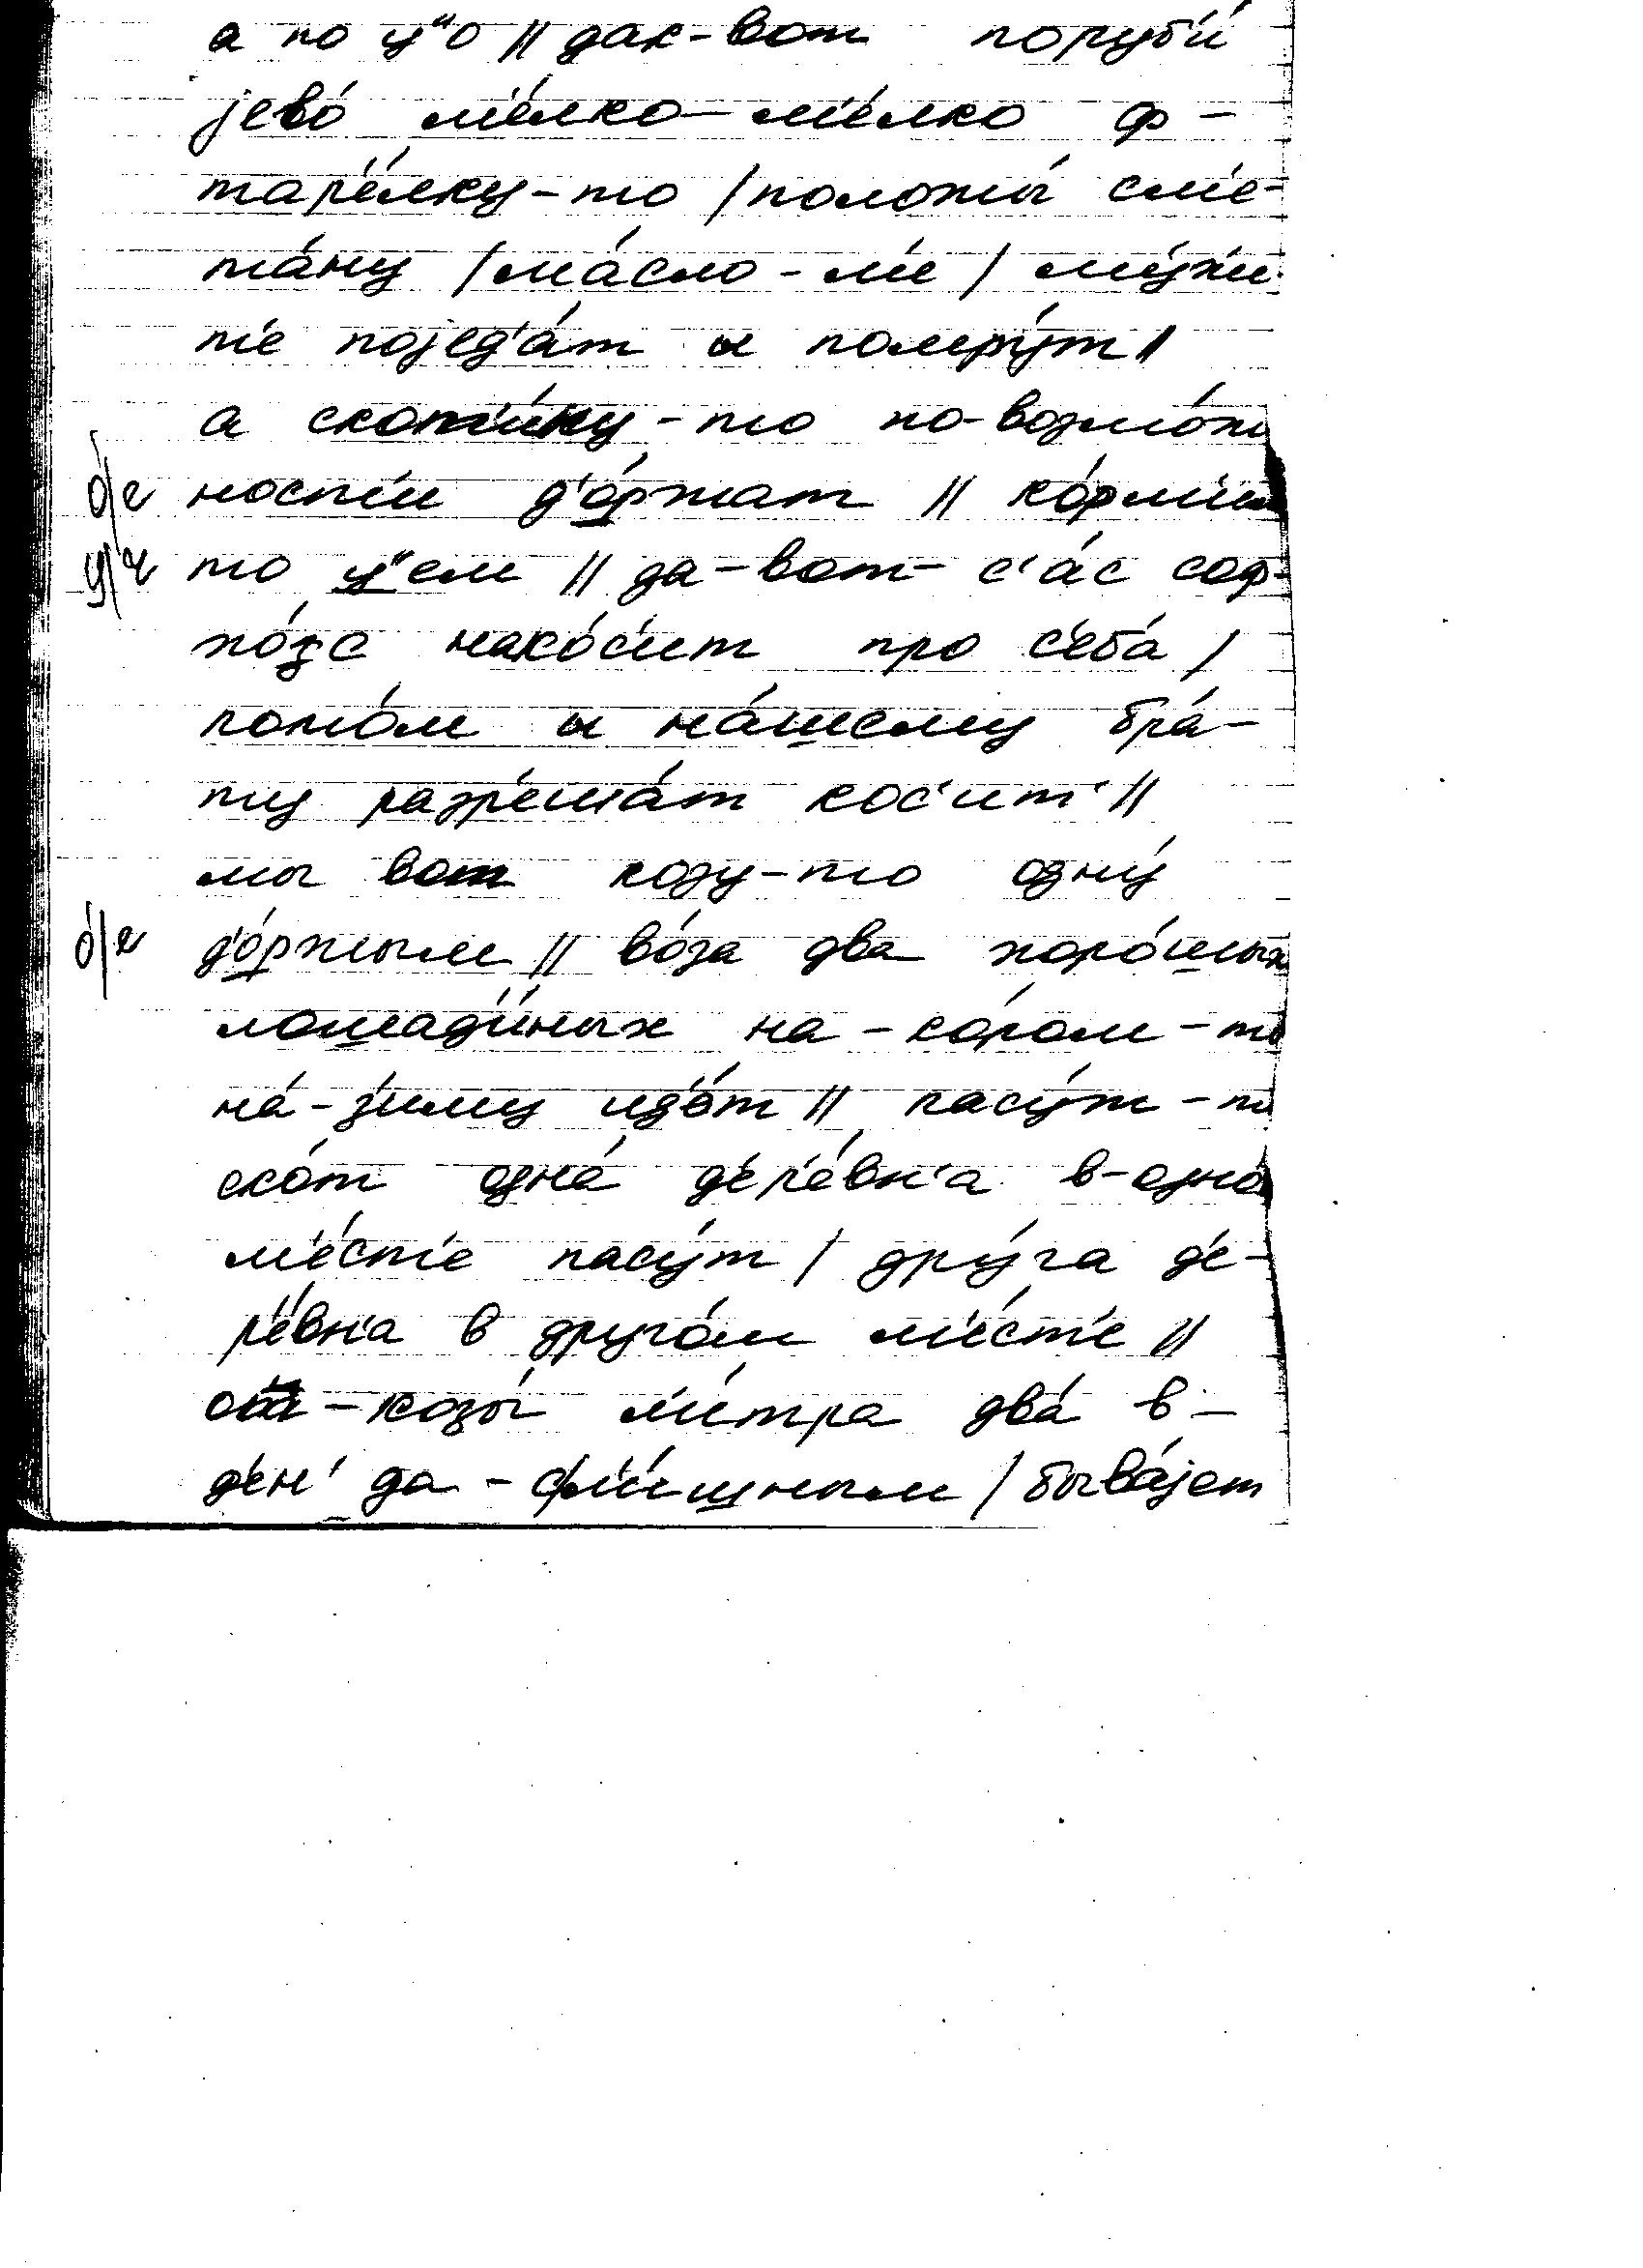 а по ц"о // дак-вот поруби́
jево́ м'е́лко-м'е́лко ф-
тар'е́лку-то / положы́ см'е-
та́ну / ма́сло-л'и / му́хи
т'е поjед'а́т и помру́т //
а скот'и́ну-то по-возмо́ж
ност'и д'о́ржат // ко́рм'им
о́/е
то ц"ем // да-вот- с'а́с соф-
ц/ч
хо́зс нако́с'ит про с'еб'а́ /
пото́м и на́шему бра́-
ту разр'еша́т кос'ит' //
мы вот козу-то одну́
д'о́ржым // во́за два хоро́шых
о́/е
лошад'и́ных на-ко́ром-то
на́-з'иму ид'о́т // пасу́т-то
ско́т одна́ д'ер'е́вн'а в-одно́
м'е́ст'е пасу́т / дру́га д'е-
р'е́вн'а в друго́м м'е́ст'е //
от-козы́ л'и́тра два́ в-
д'ен' да-с л'и́шным / быва́jет